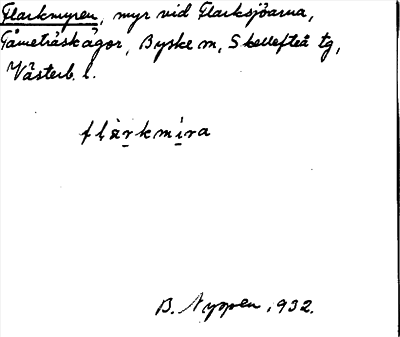 Flarkmyren, myr vid Flarksjöarna,
Tåmeträskägor, Byske sn, Skellefteå tg,
Västerb. l.
flàrkmíra
B. Nyppen, 1932.